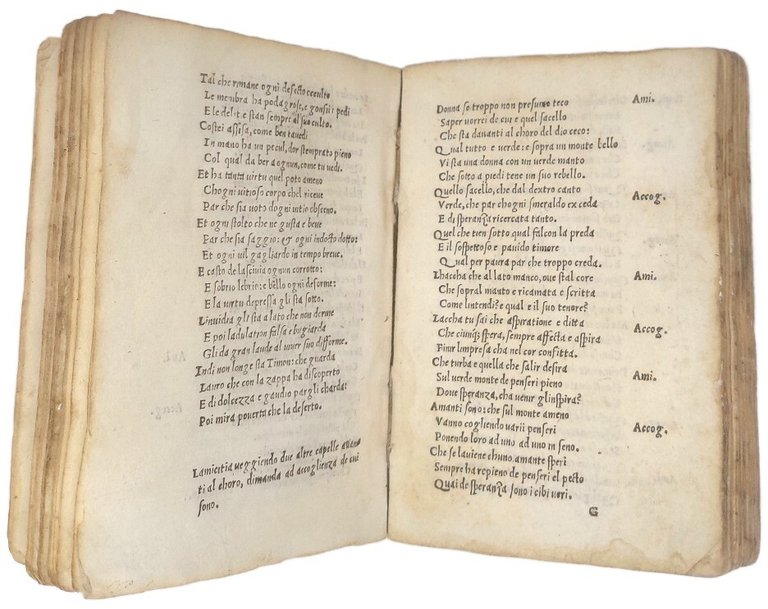 Tal che rimane ogni defecto occulto
Le membra ha podagrose, e gonfii i pedi
E le delit e stan sempre al suo culto.
Costei assisa, come ben tauedi
In mano ha un pecul, dor stemprato pieno
Col qual da ber a ognun, come tu vedi.
Et ha tanta virtu quel poto ameno
Chogni vitioso corpo chel riceve
Par che sia voto dogni vitio obsceno.
Et ogni stolto che ne gusta e beve
Par che sia saggio: & ogni indocto dotto:
Et ogni vil gagliardo in tempo breve.
E casto de lascivia ognun corrotto:
E sobrio lebrio: e bello ogni deforme:
E la virtu depressa gli sta sotto.
Linvidia gli sta a lato che non dorme
E poi ladulation falsa e bugiarda
Gli da gran laude al viver suo difforme.
Indi non longe sta Timon: che guarda
Lauro che con la zappa ha discoperto
E di dolcezza e gaudio par gli charda:
Poi mira poverta che la deserto.
Lamicitia veggiendo due altre capelle avan
ti al choro, dimanda ad accoglienza de cui
sono.
Donna se troppo non presumo teco Ami.
Saper vorrei de cui e quel sacello
Che sta davanti al choro del dio ceco:
Qual tutto e verde: e sopra un monte bello
Vi sta una donna con un verde manto
Che sotto a piedi tene un suo rebello.
Quello sacello, che dal dextro canto Accog.
Verde, che par chogni smeraldo exceda
E di speranza ricercata tanto.
Quel che tien sotto qual falcon la preda
E il sospettoso e pavido timore
Qual per paura par che troppo creda.
Lhaccha che al lato manco, ove stal core Ami.
Che sopral manto e ricamata e scritta
Come lintendi? e qual e il suo tenore?
Laccha tu sai che aspiratione e ditta Accog.
Che ciunque spera, sempre affecta e aspira
Finir limpresa cha nel cor confitta.
Che turba e quella che salir desira Ami.
Sul verde monte de penseri pieno
Dove speranza, cha venir glinspira?
Amanti sono: che sul monte ameno Accog.
Vanno cogliendo varii penseri
Ponendo loro ad uno ad uno in seno.
Che se laviene chuno amante speri
Sempre ha repieno de penseri el pecto
Quai de speranza sono i cibi veri.
G